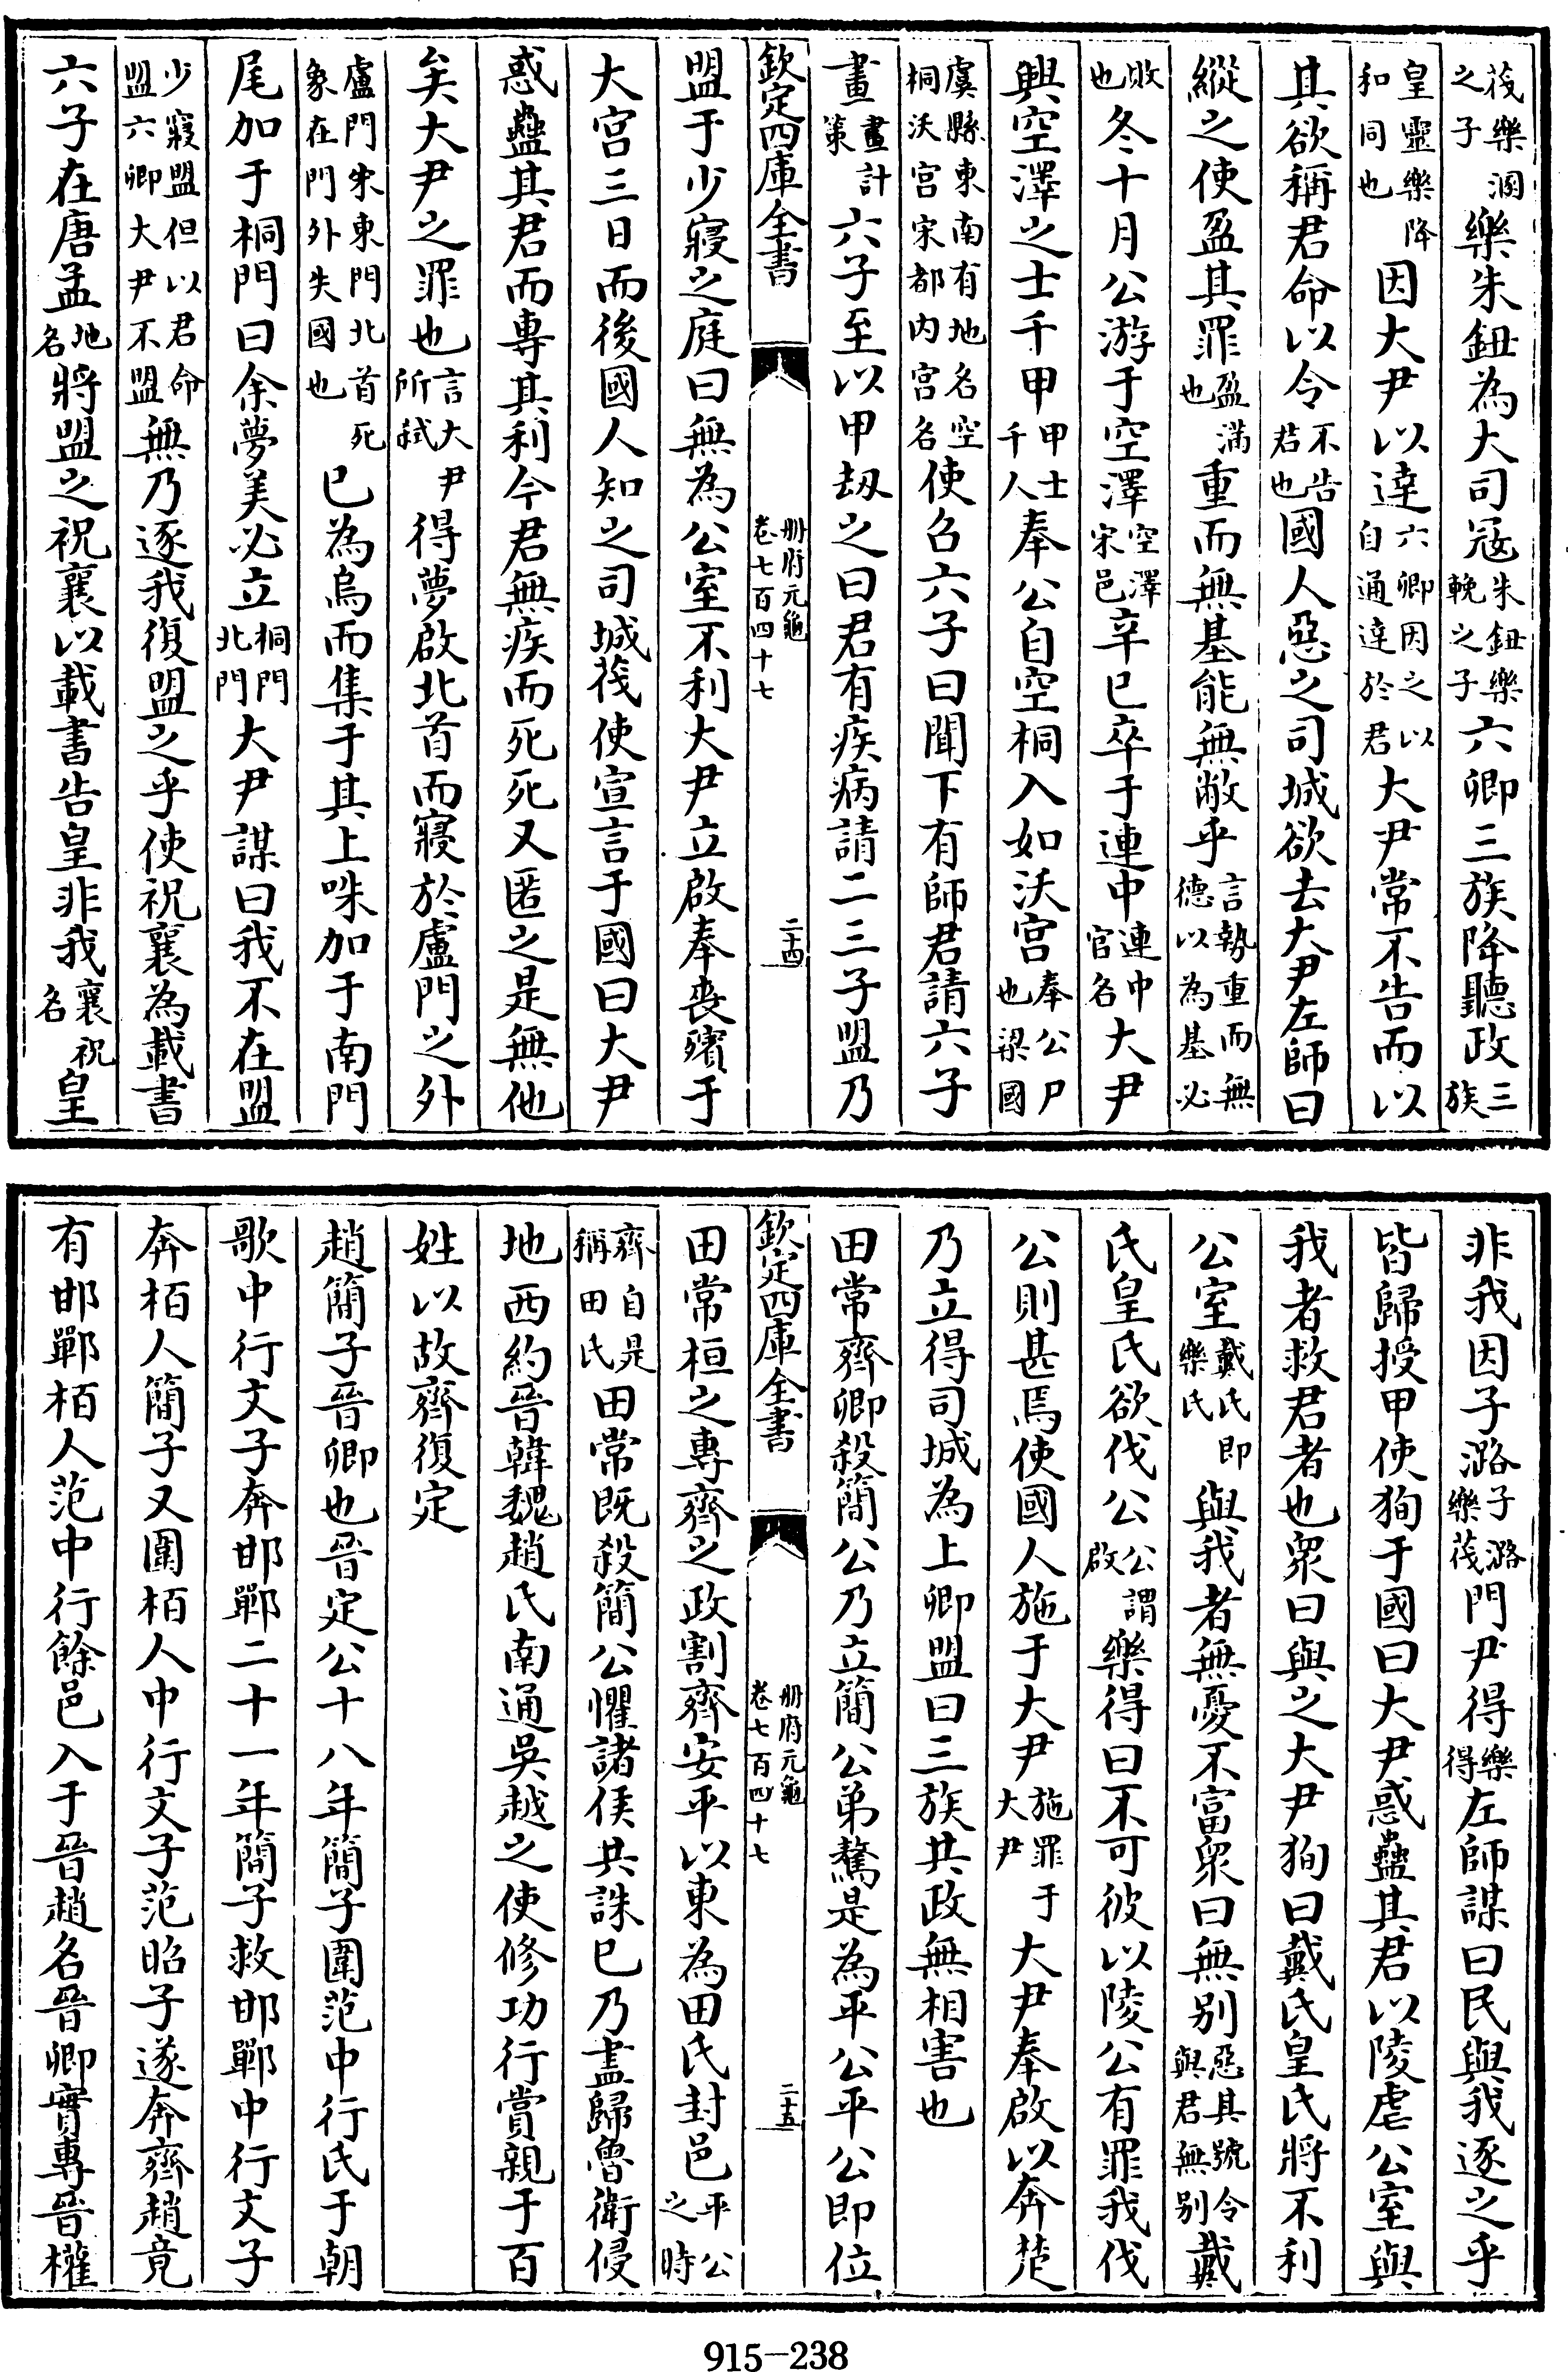 茷樂溷之子樂朱鉏為大司寇朱鉏樂輓之子六卿三族降聽政三族
皇靈樂降和同也因大尹以達六卿因之以自通達於君大尹常不告而以
其欲稱君命以令不告君也國人惡之司城欲去大尹左師曰
縱之使盈其罪盈滿也重而無基能無敝乎言勢重而無德以為基必
敗也冬十月公游于空澤空澤宋邑辛巳卒于連中連中官名大尹
興空澤之士千甲甲士千人奉公自空桐入如沃宫奉公尸也梁國
虞縣東南有地名空桐沃宫宋都内宫名使召六子曰聞下有師君請六子
畫畫計策六子至以甲刼之曰君有疾病請二三子盟乃
欽定四庫全書 册府元龜卷七百四十七 二十四
盟于少寢之庭曰無為公室不利大尹立啟奉喪殯于
大宫三日而後國人知之司城茷使宣言于國曰大尹
惑蠱其君而專其利今君無疾而死死又匿之是無他
矣大尹之罪也言大尹所弑得夢啟北首而寢於盧門之外
盧門宋東門北首死象在門外失國也已為烏而集于其上咮加于南門
尾加于桐門曰余夢美必立桐門北門大尹謀曰我不在盟
少寢盟但以君命盟六卿大尹不盟無乃逐我復盟之乎使祝襄為載書
六子在唐孟地名將盟之祝襄以載書告皇非我襄祝名皇
非我因子潞子潞樂茷門尹得樂得左師謀曰民與我逐之乎
皆歸授甲使狥于國曰大尹惑蠱其君以陵虐公室與
我者救君者也衆曰與之大尹狥曰戴氏皇氏將不利
公室戴氏即樂氏與我者無憂不富衆曰無别惡其號令與君無别戴
氏皇氏欲伐公公謂啟樂得曰不可彼以陵公有罪我伐
公則甚焉使國人施于大尹施罪于大尹大尹奉啟以奔楚
乃立得司城為上卿盟曰三族共政無相害也
田常齊卿殺簡公乃立簡公弟驁是為平公平公即位
欽定四庫全書 册府元龜卷七百四十七 二十五
田常桓之專齊之政割齊安平以東為田氏封邑平公之時
齊自是稱田氏田常既殺簡公懼諸侯共誅已乃盡歸魯衛侵
地西約晉韓魏趙氏南通吳越之使修功行賞親于百
姓以故齊復定
趙簡子晉卿也晉定公十八年簡子圍范中行氏于朝
歌中行文子奔邯鄲二十一年簡子救邯鄲中行文子
奔栢人簡子又圍栢人中行文子范昭子遂奔齊趙竟
有邯鄲栢人范中行餘邑入于晉趙名晉卿實專晉權
915-238